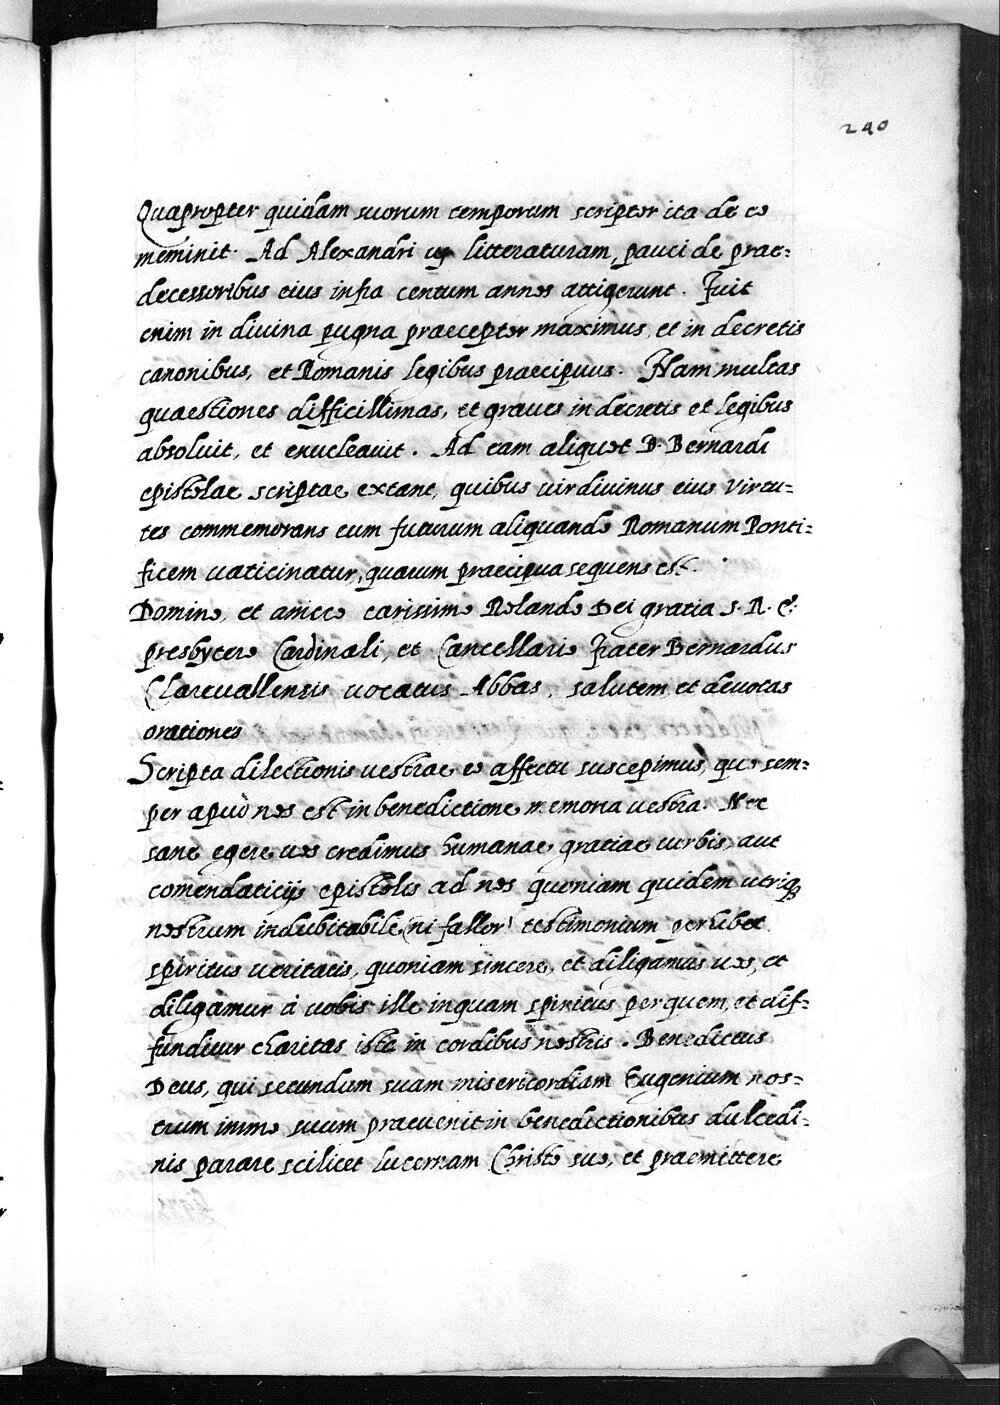 240
Quapropter quidam suorum temporum scriptor ita de eo
meminit. Ad Alexandri litteraturam, pauci de prae=
decessoribus eius infra centum annos attigerunt. Fuit
enim in divina pugna praeceptor maximus, et in decretis
canonibus, et Romanis legibus praecipuus. Nam multas
quaestiones difficillimas, et graues in decretis et legibus
absoluit, et enucleauit. Ad eam aliquot D. Bernardi
epistolae scriptae extant, quibus uir diuinus eius virtu=
tes commemorans eum futurum aliquando Romanum Ponti=
ficem uaticinatur, quarum praecipua sequens est.
Domino, et amico carissimo Rolando Dei gratia S. R. E.
presbytero Cardinali, et Cancellario frater Bernardus
Clareuallensis uocatus Abbas, salutem et deuotas
orationes
Scripta dilectionis uestrae eo affectu suscepimus, quo sem=
per apud nos est in benedictione memoria uestra. Nec
sane egere uos credimus humanae gratiae uerbis, aut
comendaticijs epistolis ad nos quoniam quidem utriq
nostrum indubitabile (ni fallor) testimonium perhibet
spiritus ueritatis, quoniam sincere, et diligamus uos, et
diligamur à uobis ille inquam spiritus per quem, et dif=
funditur charitas ista in cordibus nostris. Benedictus
Deus, qui secundum suam misericordiam Eugenium nos=
trum immo suum praeuenit in benedictionibus dulcedi=
nis parare scilicet lucernam Christo suo, et praemittere